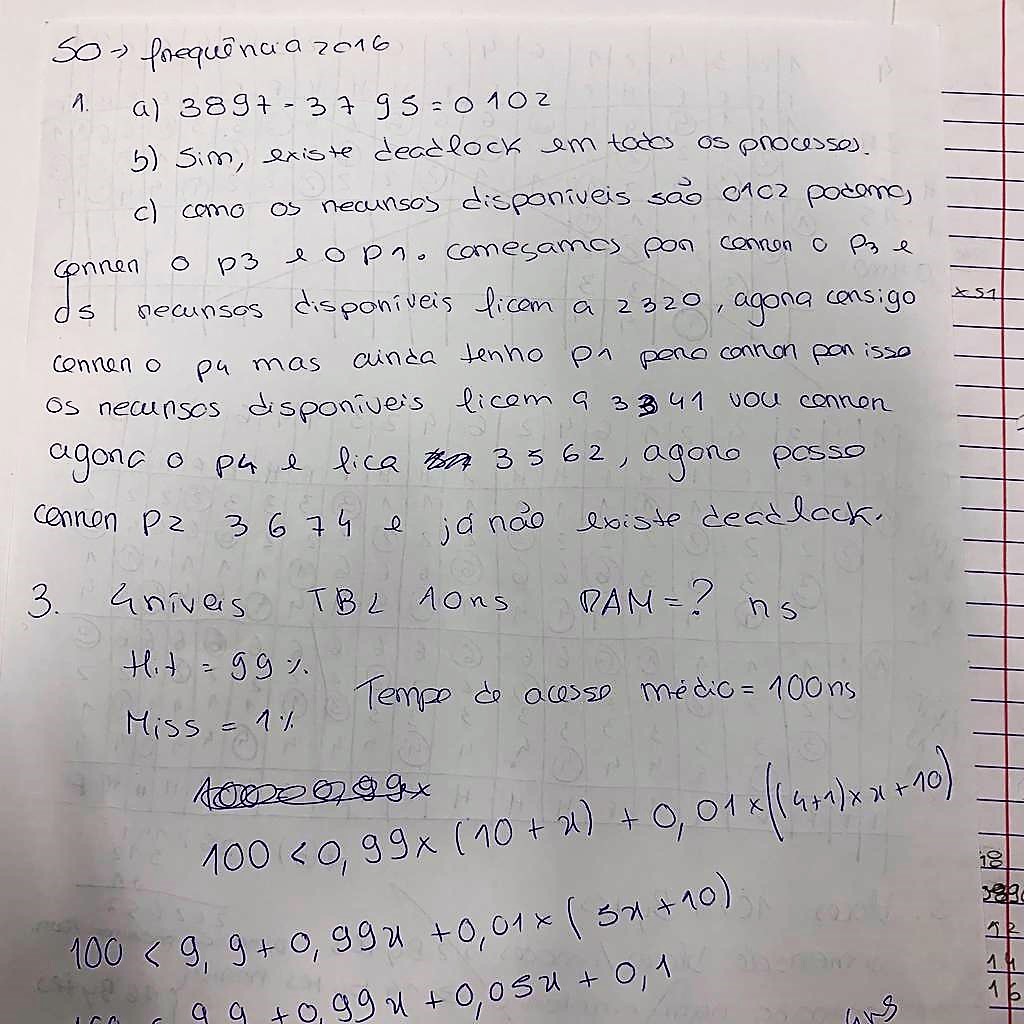 SO → frequência 2016
1. a) 3897 - 3795 = 0102
b) Sim, existe deadlock em todos os processos.
c) como os recursos disponíveis são 0102 podemos
correr o p3 e o p1. começamos por correr o p3 e
os recursos disponíveis ficam a 2320, agora consigo
correr o p4 mas ainda tenho p1 para correr por isso
os recursos disponíveis ficam a 3341 vou correr
agora o p4 e fica 3562, agora posso
correr p2 3674 e já não existe deadlock.
3. 4níveis TBL 10ns RAM = ? ns
Hit = 99%
Tempo de acesso médio = 100ns
Miss = 1%
100 < 0,99 x (10 + x) + 0,01 x ((4+1) x x + 10)
100 < 9,9 + 0,99x + 0,01 x (5x + 10)
9,9 + 0,99x + 0,05x + 0,1
x51
18
12
14
16